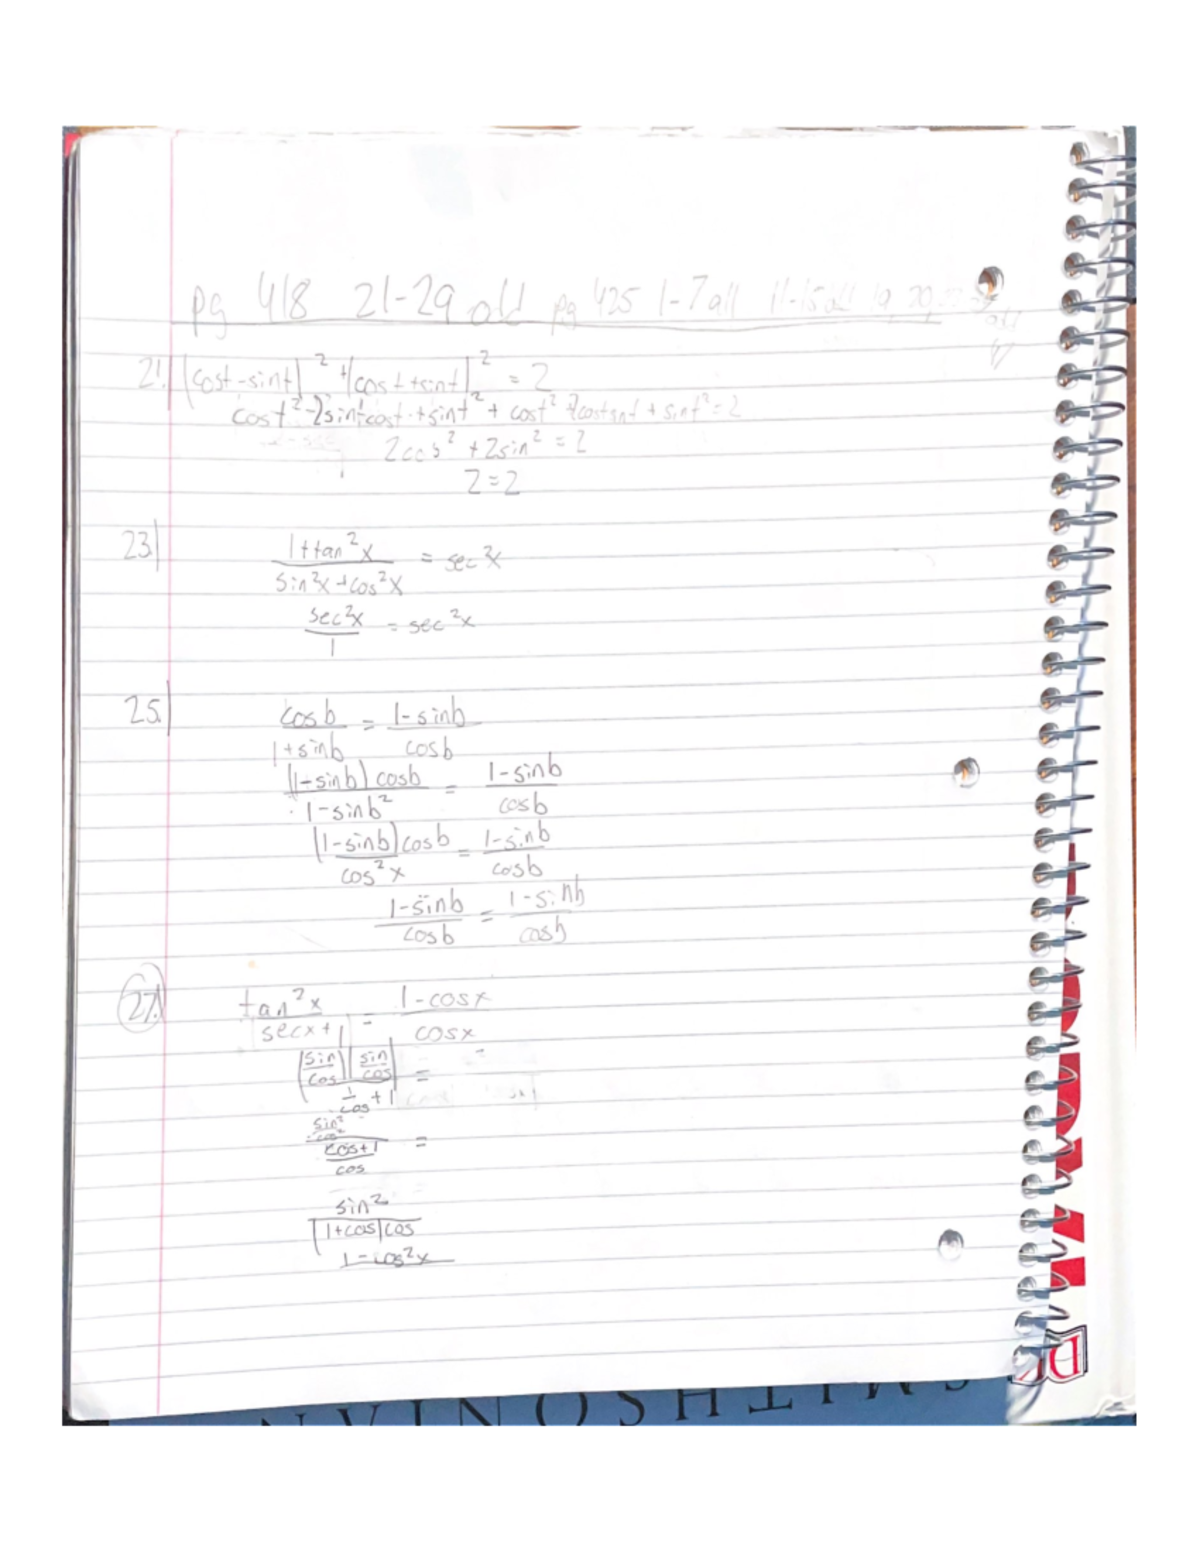 pg 418 21-29 odd pg 425 1-7 all 11-15 all 19, 20,
21.) (cost-sint)² + (cost+sint)² = 2
cost² - 2sintcost + sint² + cost² + 2costsint + sint² = 2
2cos² + 2sin² = 2
2 = 2
23.) 1+tan²x / sin²x+cos²x = sec²x
sec²x / 1 = sec²x
25.) cosb / 1+sinb = 1-sinb / cosb
(1-sinb)cosb / 1-sinb² = 1-sinb / cosb
(1-sinb)cosb / cos²x = 1-sinb / cosb
1-sinb / cosb = 1-sinb / cosb
27.) tan²x / secx+1 = 1-cosx / cosx
(sin/cos)(sin/cos) / 1/cos + 1 =
sin²/cos² / cos+1/cos =
sin² / (1+cos)cos
1-cos²x
SMITHSONIAN